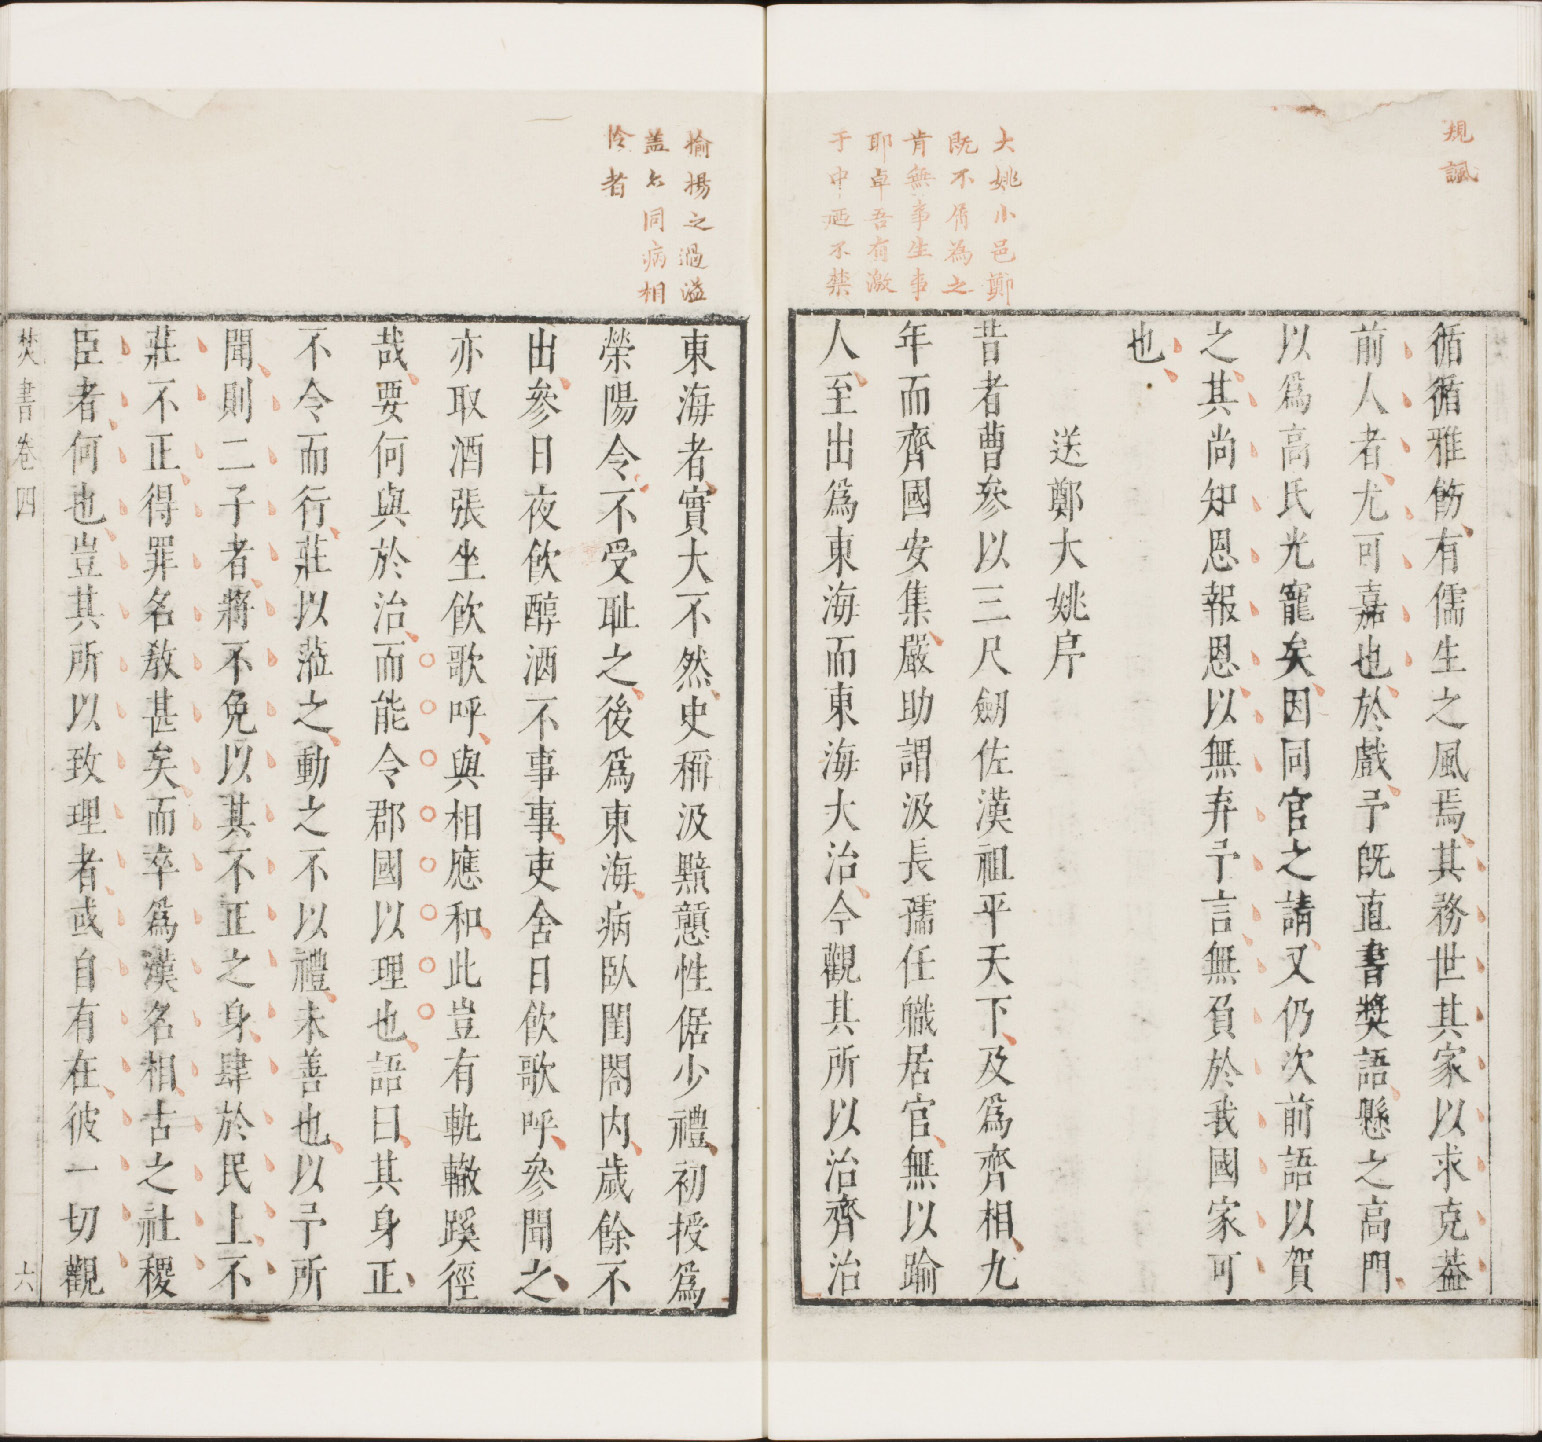 規諷
大姚小邑鄭
既不屑為之
肯無事生事
耶卓吾有激
于中逥不禁
循循雅飭有儒生之風焉其務世其家以求克蓋
前人者尤可嘉也於戲予旣直書奬語懸之高門
以爲高氏光寵矣因同官之請又仍次前語以賀
之其尚知恩報恩以無弃予言無負於我國家可
也
送鄭大姚序
昔者曹參以三尺劒佐漢祖平天下及爲齊相九
年而齊國安集嚴助謂汲長孺任職居官無以踰
人至出爲東海而東海大治今觀其所以治齊治
揄揚之過溢
蓋亦同病相
怜者
東海者實大不然史稱汲黯戇性倨少禮初授爲
榮陽令不受耻之後爲東海病臥閨閤内歲餘不
出參日夜飲醇酒不事事吏舍日飲歌呼參聞之
亦取酒張坐飲歌呼與相應和此豈有軌轍蹊徑
哉要何與於治而能令郡國以理也語曰其身正
不令而行莊以蒞之動之不以禮未善也以予所
聞則二子者將不免以其不正之身肆於民上不
莊不正得罪名教甚矣而卒爲漢名相古之社稷
臣者何也豈其所以致理者或自有在彼一切觀
焚書卷四
六